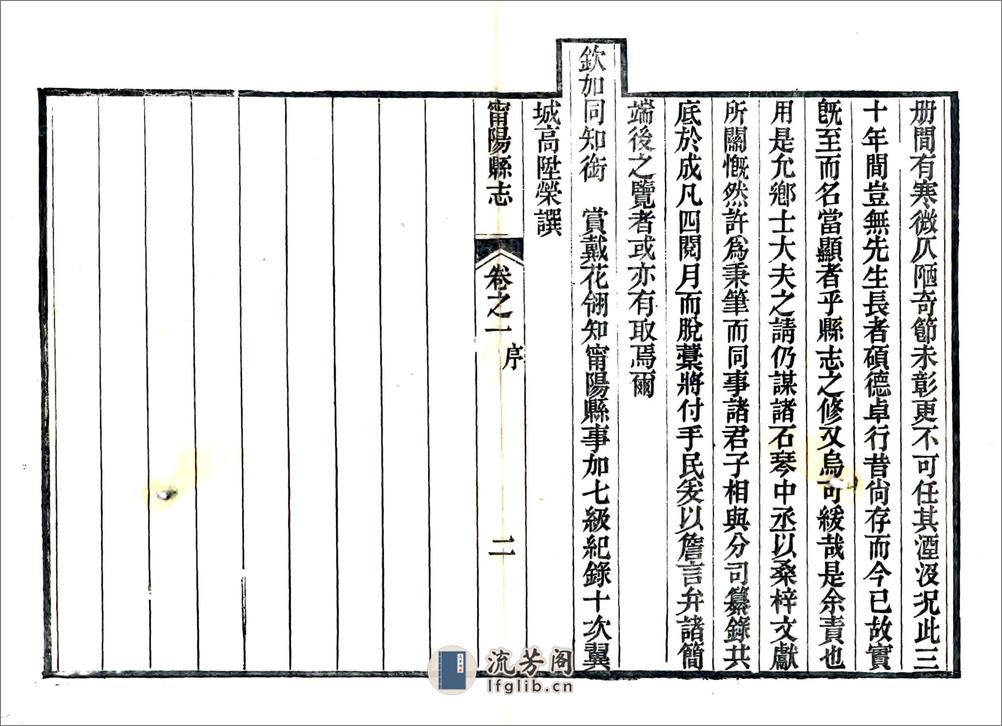 册間有寒微仄陋奇節未彰更不可任其湮沒况此三
十年間豈無先生長者碩德卓行昔尙存而今已故實
旣至而名當顯者乎縣志之修又烏可緩哉是余責也
用是允鄕士大夫之請仍謀諸石琴中丞以桑梓文獻
所關慨然許爲秉筆而同事諸君子相與分司纂錄共
底於成凡四閱月而脫藁將付手民爰以詹言弁諸簡
端後之覽者或亦有取焉爾
欽加同知銜　賞戴花翎知甯陽縣事加七級紀錄十次翼
城高陞榮譔
甯陽縣志
卷之一
序
二
流芳阁
lfglib.cn